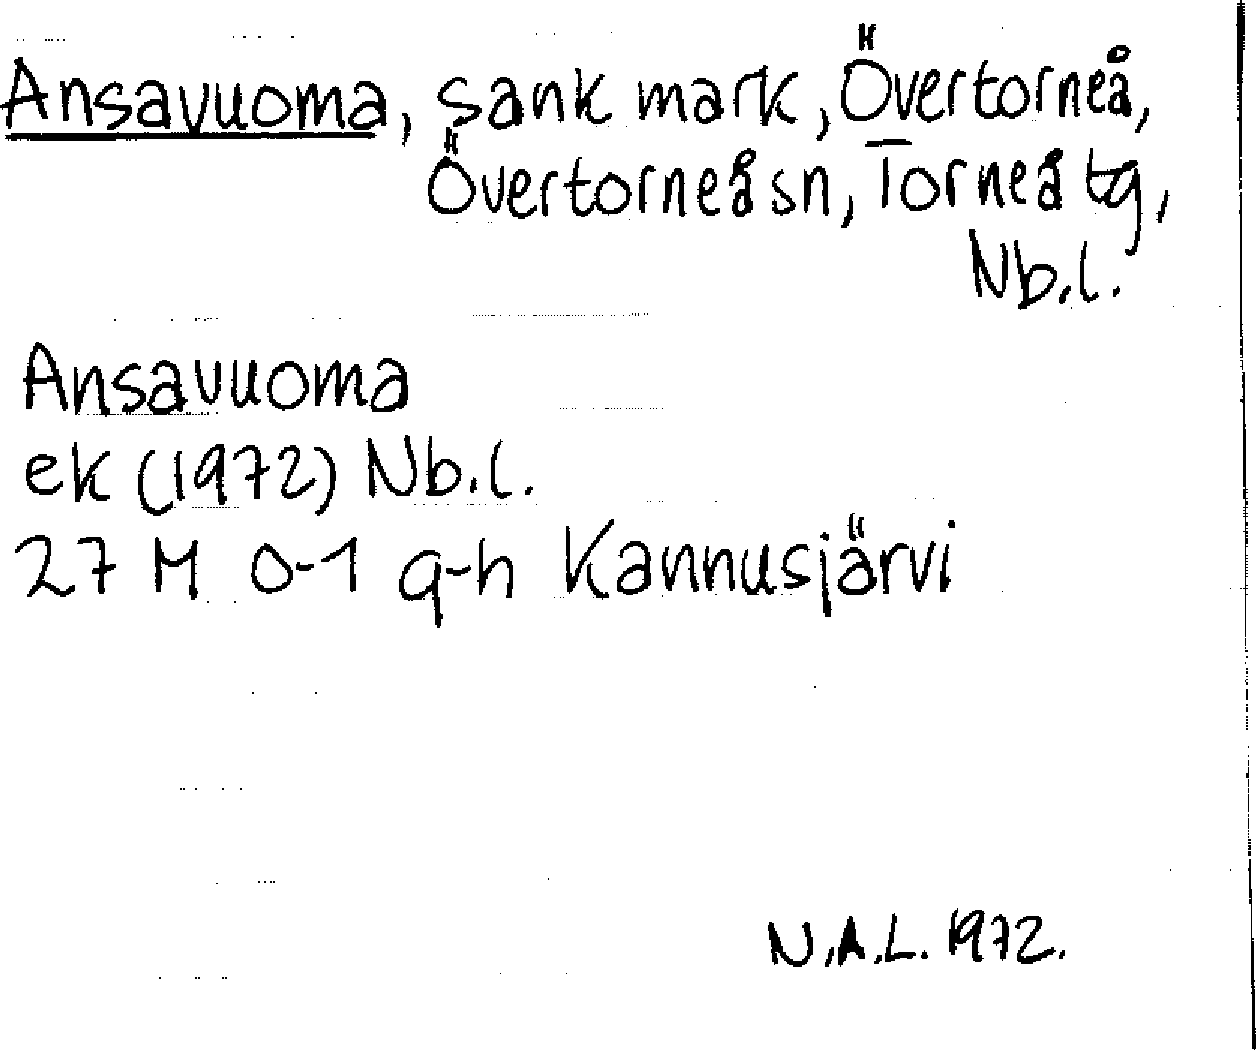 Ansavuoma, sank mark, Övertorneå,
Övertorneå sn, Torneå tg,
Nb.l.
Ansavuoma
ek (1972) Nb.l.
27 M 0-1 g-h Kannusjärvi
N.A.L. 1972.